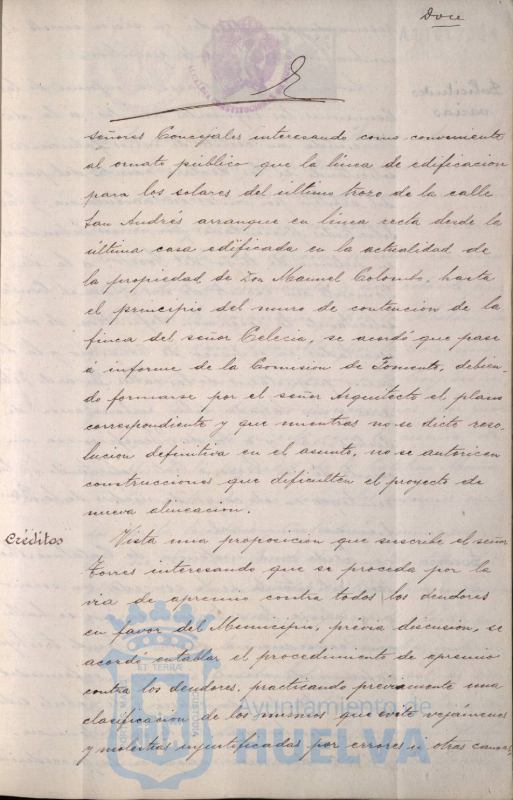 Doce
señores Concejales interesando como conveniente
al ornato público que la línea de edificacion
para los solares del último trozo de la calle
San Andrés arranque en línea recta desde la
última casa edificada en la actualidad de
la propiedad de Don Manuel Colombo, hasta
el principio del muro de contencion de la
finca del señor Celecia, se acordó que pase
á informe de la Comision de Fomento, debien-
do formarse por el señor Arquitecto el plano
correspondiente y que mientras no se dicte reso-
lucion definitiva en el asunto, no se autoricen
construcciones que dificulten el proyecto de
nueva alineacion.
Créditos
Vista una proposición que suscribe el señor
Torres interesando que se proceda por la
via de apremio contra todos los deudores
en favor del Municipio, prévia discusion, se
acordó entablar el procedimiento de apremio
contra los deudores, practicando préviamente una
clasificacion de los mismos que evite vejámenes
y molestias injustificadas por errores ú otras causas,
ET TERRA
Ayuntamiento de
HUELVA